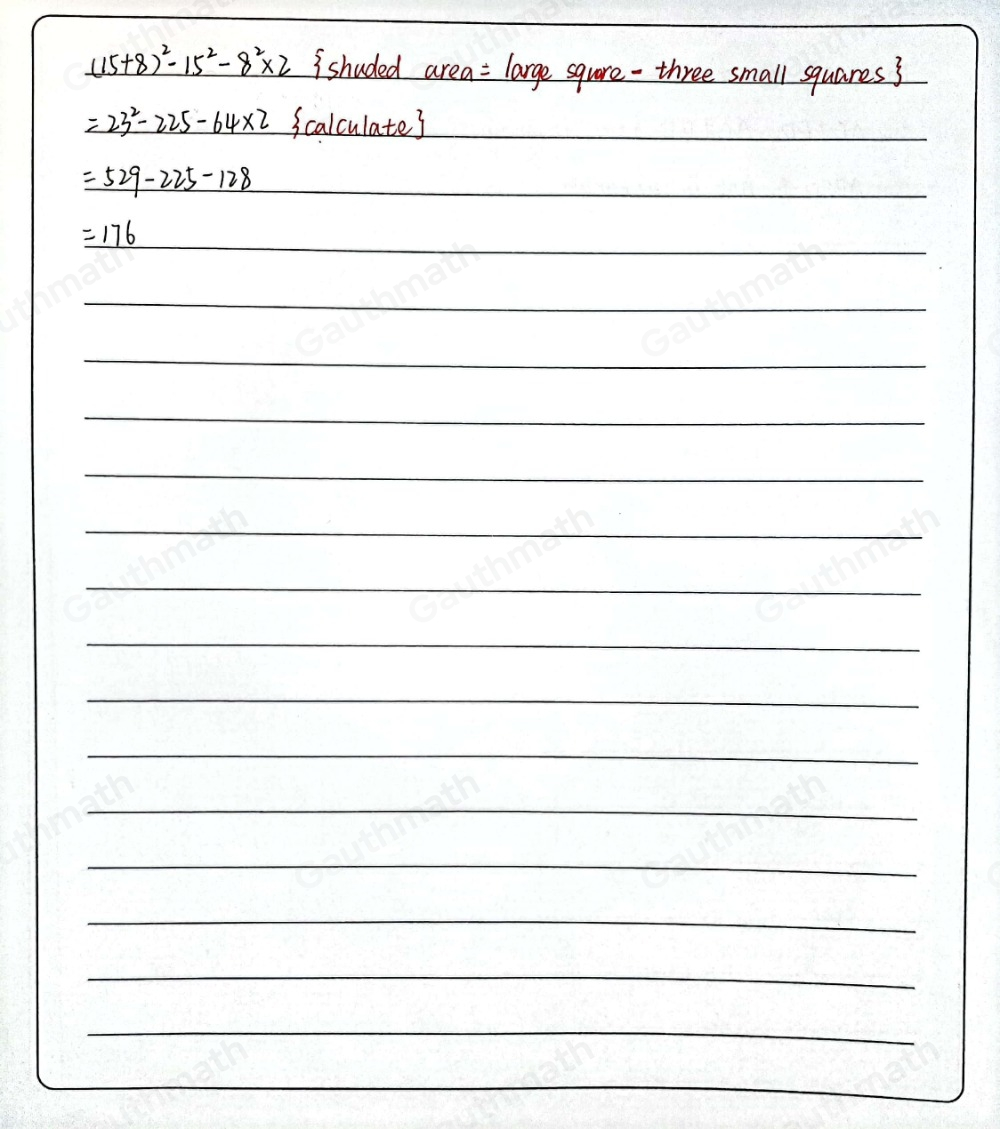 (15+8)²-15²-8²×2 {shuded area = large square - three small squares}
=23²-225-64×2 {calculate}
=529-225-128
=176
Gauthmath